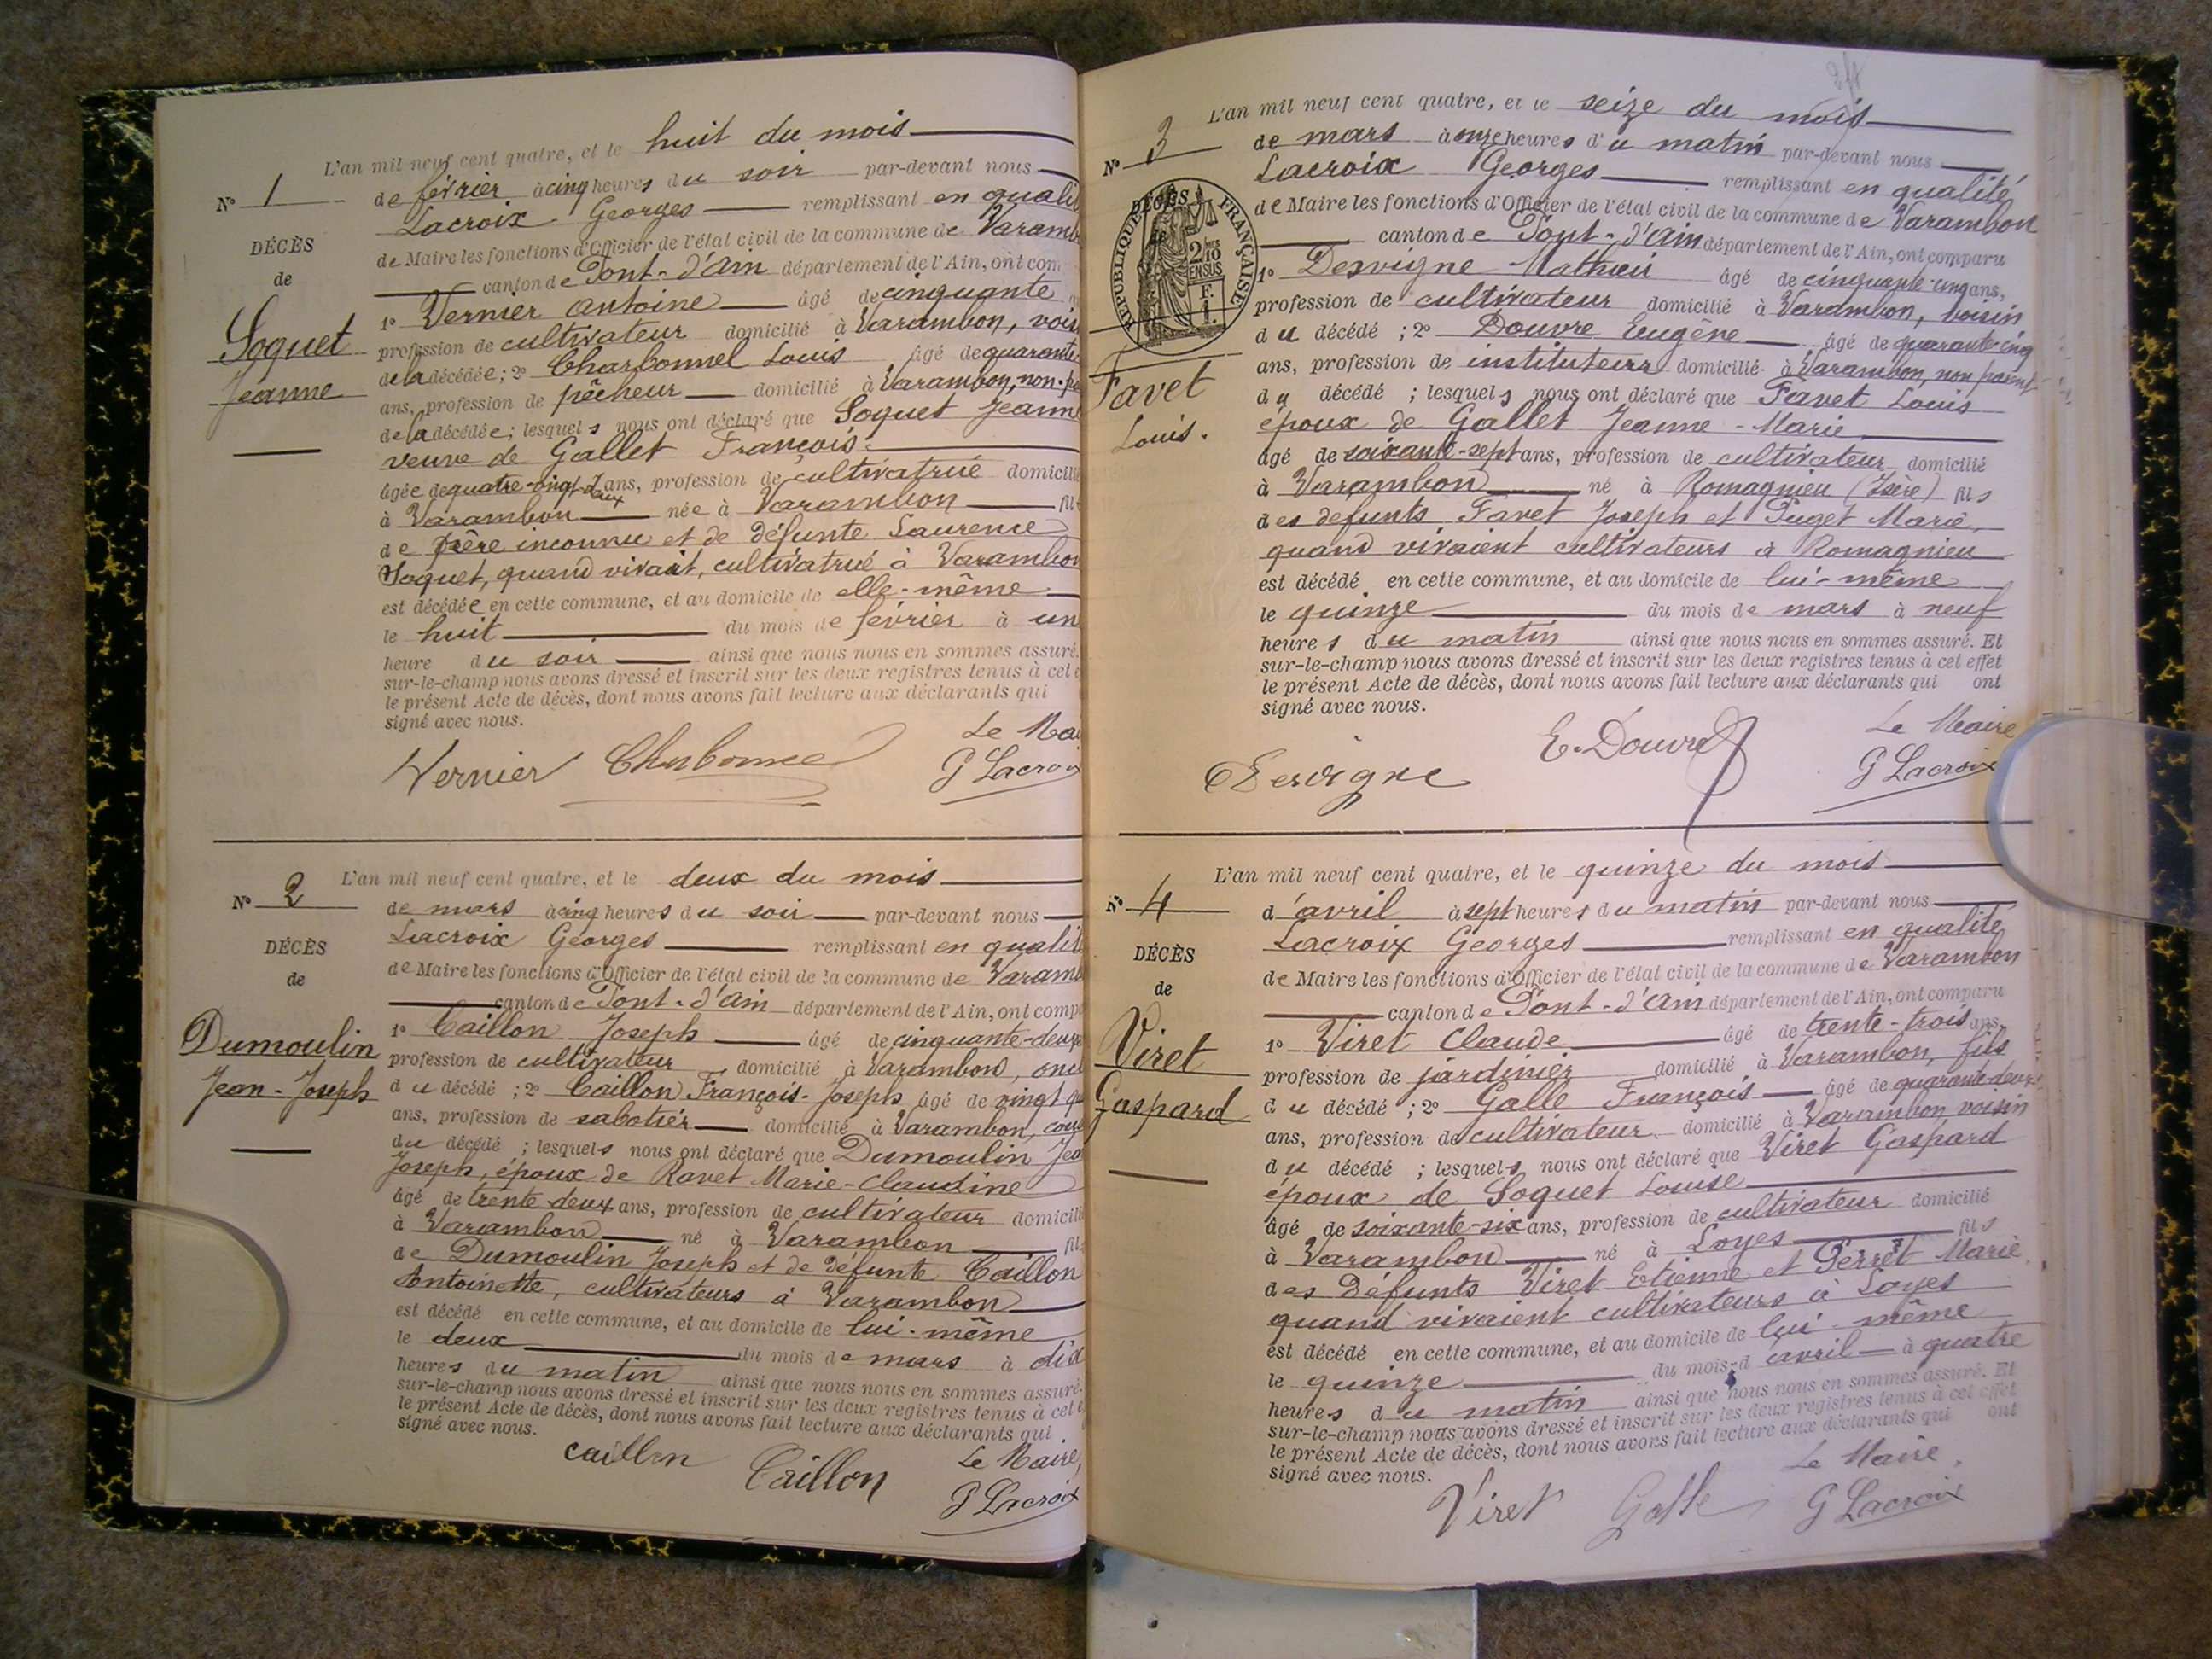 L'an mil neuf cent quatre, et le huit du mois
N° 1 de février à cinq heures du soir par-devant nous
Lacroix Georges remplissant en quali
DÉCÈS de Maire les fonctions d'Officier de l'état civil de la commune de Varamb
de canton de Pont-d'Ain département de l'Ain, ont com
1° Vernier Antoine âgé de cinquante
Soquet profession de cultivateur domicilié à Varambon, vois
Jeanne de la décédée ; 2° Charbonnel Louis âgé de quarante-
ans, profession de pêcheur domicilié à Varambon, non-pa
de la décédée ; lesquels nous ont déclaré que Soquet Jeanne
veuve de Gallet François
âgée de quatre-vingt-deux ans, profession de cultivatrice domicilié
à Varambon née à Varambon fil
de père inconnu et de défunte Laurence
Soquet, quand vivait, cultivatrice à Varambon
est décédée en cette commune, et au domicile de elle-même
le huit du mois de février à un
heure du soir ainsi que nous nous en sommes assuré.
sur-le-champ nous avons dressé et inscrit sur les deux registres tenus à cet e
le présent Acte de décès, dont nous avons fait lecture aux déclarants qui
signé avec nous.
Le Mai
Vernier Charbonnel G Lacroix
L'an mil neuf cent quatre, et le deux du mois
N° 2 de mars à cinq heures du soir par-devant nous
Lacroix Georges remplissant en qualit
DÉCÈS de Maire les fonctions d'Officier de l'état civil de la commune de Varamb
de canton de Pont-d'Ain département de l'Ain, ont comp
1° Caillon Joseph âgé de cinquante-deux
Dumoulin profession de cultivateur domicilié à Varambon, oncl
Jean-Joseph du décédé ; 2° Caillon François-Joseph âgé de vingt qu
ans, profession de sabotier domicilié à Varambon, cous
du décédé ; lesquels nous ont déclaré que Dumoulin Jea
Joseph, époux de Ravet Marie-Claudine
âgé de trente-deux ans, profession de cultivateur domicilié
à Varambon né à Varambon fils
de Dumoulin Joseph et de défunte Caillon
Antoinette, cultivateurs à Varambon
est décédé en cette commune, et au domicile de lui-même
le deux du mois de mars à dix
heures du matin ainsi que nous nous en sommes assuré.
sur-le-champ nous avons dressé et inscrit sur les deux registres tenus à cet e
le présent Acte de décès, dont nous avons fait lecture aux déclarants qui
signé avec nous.
Le Maire,
Caillon Caillon G Lacroix
L'an mil neuf cent quatre, et le seize du mois
N° 3 de mars à onze heures du matin par-devant nous
Lacroix Georges remplissant en qualité
DÉCÈS
RÉPUBLIQUE FRANÇAISE
2/10 EN SUS
de Maire les fonctions d'Officier de l'état civil de la commune de Varambon
canton de Pont-d'Ain département de l'Ain, ont comparu
1° Desvigne Mathieu âgé de cinquante-cinq ans,
profession de cultivateur domicilié à Varambon, voisin
du décédé ; 2° Douvre Eugène âgé de quarante-cinq
Favet ans, profession de instituteur domicilié à Varambon, non parent
du décédé ; lesquels nous ont déclaré que Favet Louis
Louis. époux de Gallet Jeanne-Marie
âgé de soixante-sept ans, profession de cultivateur domicilié
à Varambon né à Romagnieu (Isère) fils
des defunts Favet Joseph et Puget Marie,
quand vivaient cultivateurs à Romagnieu
est décédé en cette commune, et au domicile de lui-même
le quinze du mois de mars à neuf
heures du matin ainsi que nous nous en sommes assuré. Et
sur-le-champ nous avons dressé et inscrit sur les deux registres tenus à cet effet
le présent Acte de décès, dont nous avons fait lecture aux déclarants qui ont
signé avec nous.
Le Maire
Desvigne E. Douvre G Lacroix
L'an mil neuf cent quatre, et le quinze du mois
N° 4 d'avril à sept heures du matin par-devant nous
Lacroix Georges remplissant en qualité
DÉCÈS de Maire les fonctions d'Officier de l'état civil de la commune de Varambon
de canton de Pont-d'Ain département de l'Ain, ont comparu
1° Viret Claude âgé de trente-trois ans,
Viret profession de jardinier domicilié à Varambon, fils
Gaspard du décédé ; 2° Galle François âgé de quarante-deux
ans, profession de cultivateur domicilié à Varambon voisin
du décédé ; lesquels nous ont déclaré que Viret Gaspard
époux de Soquet Louise
âgé de soixante-six ans, profession de cultivateur domicilié
à Varambon né à Loyes fils
des Défunts Viret Etienne et Perret Marie
quand vivaient cultivateurs à Loyes
est décédé en cette commune, et au domicile de lui-même
le quinze du mois d'avril à quatre
heures du matin ainsi que nous nous en sommes assuré. Et
sur-le-champ nous avons dressé et inscrit sur les deux registres tenus à cet effet
le présent Acte de décès, dont nous avons fait lecture aux déclarants qui ont
signé avec nous.
Le Maire,
Viret Galle G Lacroix